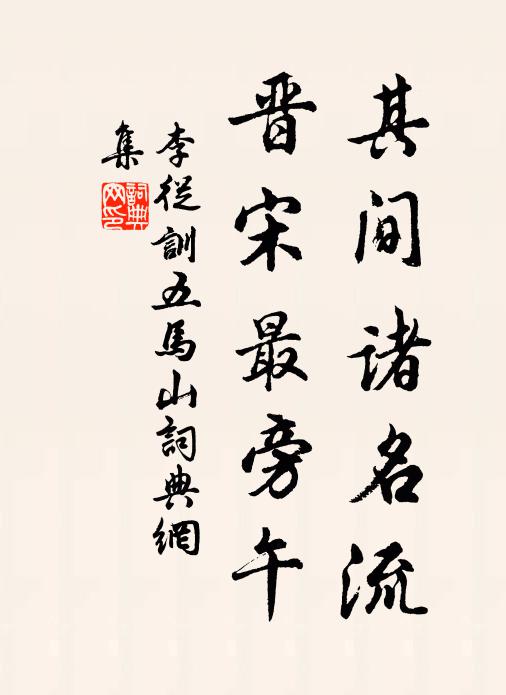 其间诸名流
晋宋最旁午
李從訓五馬山詞典網
集
詞典
网印